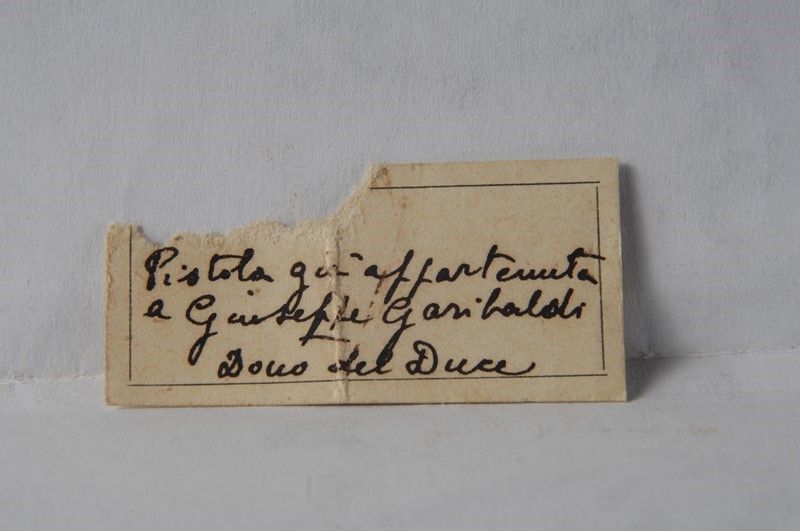 Pistola già appartenuta
a Giuseppe Garibaldi
Dono del Duce